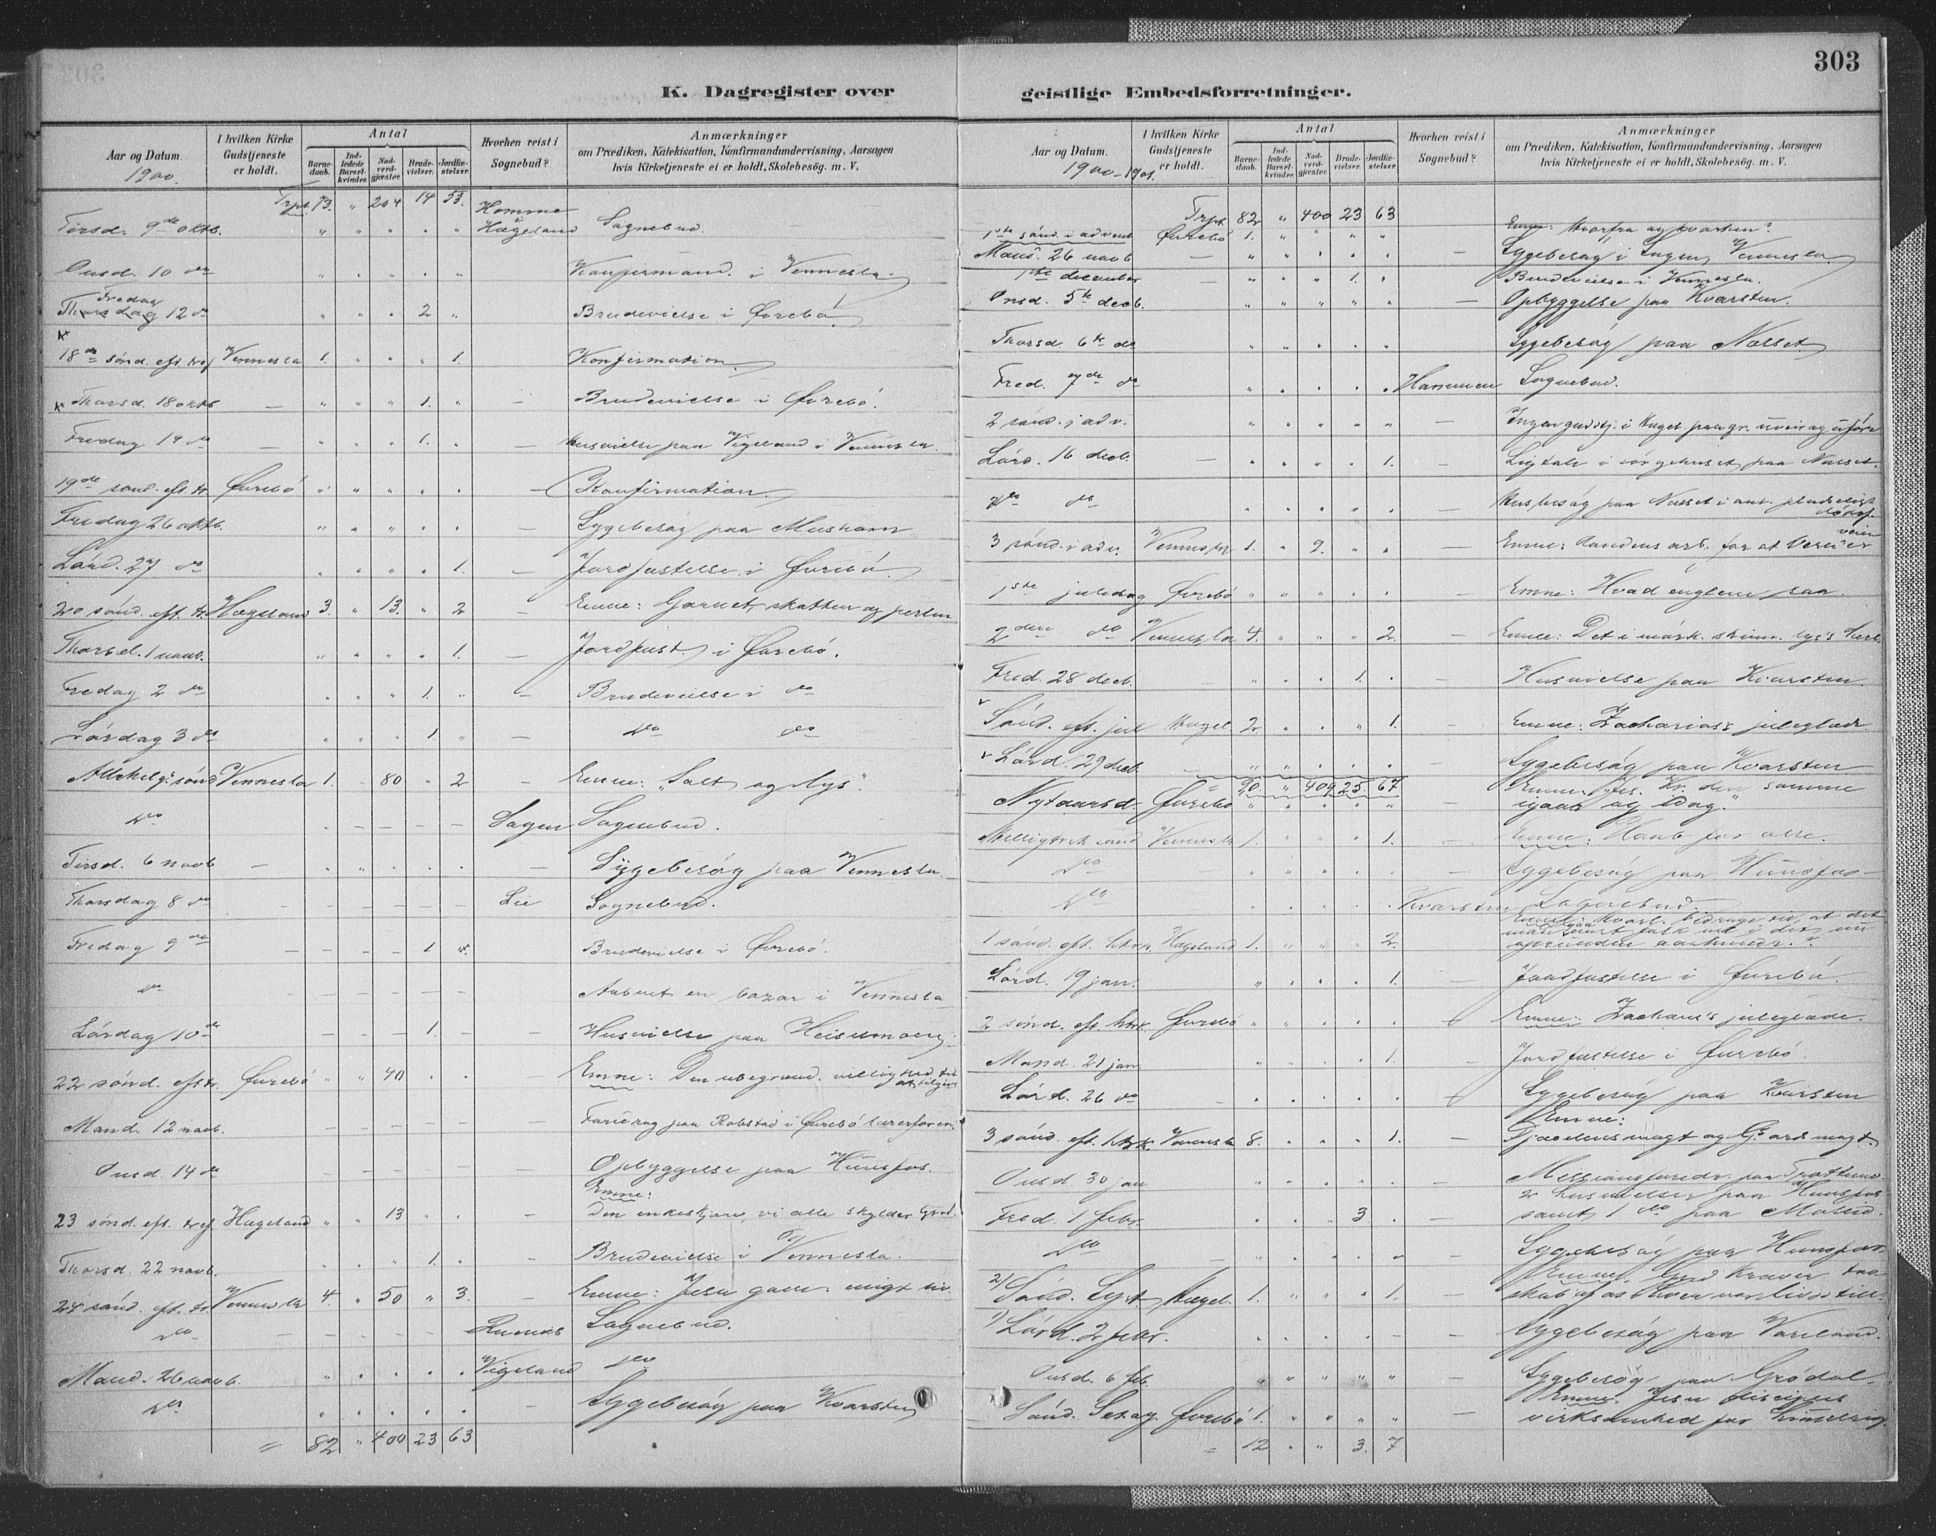 303
K. Dagregister over geistlige Embedsforretninger.
Aar og Datum. 1900. | I hvilken Kirke Gudstjeneste er holdt. | Antal | Barnedaab. | Indledede Barselkvinder. | Nadverdgjæster. | Brudevielser. | Jordfæstelser | Hvorhen reist i Sognebud? | Anmærkninger om Prædiken, Katekisation, Konfirmandundervisning, Aarsagen hvis Kirketjeneste ei er holdt, Skolebesøg. m. V.
Trpt. 73. " 204 14 53. Homme
Tirsd. 9de oktb. " " " " " Hægeland Sognebud.
Onsd. 10 do " " " " " Konfirmand. i Vennesla.
Fredag
Thorsdag 12 do " " " 2 " Brudevielse i Øvrebö.
18de sönd. eft. tref Vennesla 1. " " " 1. Konfirmation.
Thorsd. 18 oktb — " " " 1. " Brudevielse i Øvrebö.
Fredag 19 do — " " " 1. " — Husvielse paa Vigeland i Vennesla.
19de sönd. eft. tr. Øvrebö " " " " " — Konfirmation.
Fredag 26 oktb. " " " " " — Sygebesög paa
Lörd. 27 do " " " " 1. — Jordfæstelse i Øvrebö.
20 sönd. eft. tr. Hægeland 3. " 13. " 2 — Emne: Garnet, skatten og perlen
Thorsd. 1 novb. " " " " 1. — Jordfæst. i Øvrebö.
Fredag 2 do " " " 1. " — Brudevielse i do
Lördag 3 do " " " 1 " — do do
Allehelg. sönd Vennesla 1. " 80 " 2 — Emne: "Salt og lys".
do — — — — — Sagen Sognebud.
Tirsd. 6 novb — — Sygebesög paa Vennesla.
Thorsdag 8 do Lie Sognebud.
Fredag 9 do — — — 1 — Brudevielse i Øvrebö.
do — — — — — Aabnet en bazar i Vennesla
Lördag 10 do — — — 1. — Husvielse paa
22 sönd. eft tr. Øvrebö " " 40 . . — Emne: Den ubegrænd. villighed
Mand. 12 novb. — — — — — — Foredrag paa Robstad i Øvrebö
Onsd. 14 do — — — — — — Opbyggelse paa Hunsfos.
Emne:
23 sönd. eft. tref Hægeland " " 13 " . — Den enkeskjærv, vi alle skylder Gud.
Thorsd. 22 novb. . . . 1. . — Brudevielse i Vennesla.
24 sönd. eft. tr. Vennesla 4. " 50 " 3. Emne: Jesu
do — — — — — Sognebud.
Mand. 26 novb. " . . . . Vigeland do
do " . . . . — Sygebesög paa Kvarsten
= 82 " 400 23 63
Aar og Datum. 1900-1901. | I hvilken Kirke Gudstjeneste er holdt. | Antal | Barnedaab. | Indledede Barselkvinder. | Nadverdgjæster. | Brudevielser. | Jordfæstelser | Hvorhen reist i Sognebud? | Anmærkninger om Prædiken, Katekisation, Konfirmandundervisning, Aarsagen hvis Kirketjeneste ei er holdt, Skolebesøg. m. V.
Trpt 82 " 400 23 63
1ste sönd. i advent Øvrebö 1. " " " " Emne: Hvorfra og hvorhen?
Mand. 26 novb — " " " . . — Sygebesög i Vennesla
1ste december — " " " 1. . Brudevielse i Vennesla.
Onsd. 5te decb. " " " " " — Opbyggelse paa Kvarsten.
Thorsd. 6te do " " " " " Sygebesög paa Næsset.
Fred. 7de do " . . . . Hammen Sognebud.
2 sönd. i adv. " " " " " Ingen gudstj. i Hægel. paa gr. uveir og uföre
Lörd. 16 decb. — " " " " 1. — Ligtale i sörgehuset paa Næsset.
do do . . . . . — Husbesög paa Næsset i anl. pludseligt dödsf.
3 sönd. i adv. Vennesla 1. " 9. " " — Emne: Aandens arb. for at
1ste juledag Øvrebö " " " " " Emne: Hvad englene saa.
2den do Vennesla 4. " " " 2. — Emne: Det i mörk. skinn. lys
Fred. 28 decb. — . . . 1. . — Husvielse paa Kvarsten.
Sönd. eft. jul Hægel. 2. " . . 1. — Emne: Zacharias's juleglæde.
Lörd. 29 decb. — " " . . . — Sygebesög paa Kvarsten
90. " 409 25 67
Nytaarsd. Øvrebö " " " " " — Emne: "Jes. Kr. den samme igaar og idag."
Helligtrek. sönd Vennesla 1. . . . 1. — Emne: Haab for alle.
do . . . . . Sygebesög paa Hunsfos
do . . . . . Kvarsten Sognebud.
1 sönd. eft. htrk Hægeland 1. " " . 2. —
Lörd. 19 jan. " . . . 1. Jordfæstelse i Øvrebö
2 sönd. eft. htrk Øvrebö " " . . . Emne: Zachæus's juleglæde.
Mand. 21 jan " . . . 1. — Jordfæstelse i Øvrebö.
Lörd. 26 do . . . . . Sygebesög paa Kvarsten
Emne:
3 sönd. eft. htrk. Vennesla 8. . . . 1. — Fjendens magt og Guds magt.
Onsd 30 jan
Fred 1 febr. . . . 3 . — 2 husvielser paa Hunsfos samt 1 do paa
do — . . . . . Sygebesög paa Hunsfos.
2) Sönd. Sept Hægel. 1. . " " 1. — Emne: Gud kræver
1) Lörd. 2 febr. . . . . . — Sygebesög paa
Onsd 6 feb. " " " " " Sygebesög paa Grödal
Sönd. Sexag. Øvrebö 1. " " " " — Emne: Jesu disciples virksomhed for himmelrig.
= 12 " " 3. 7